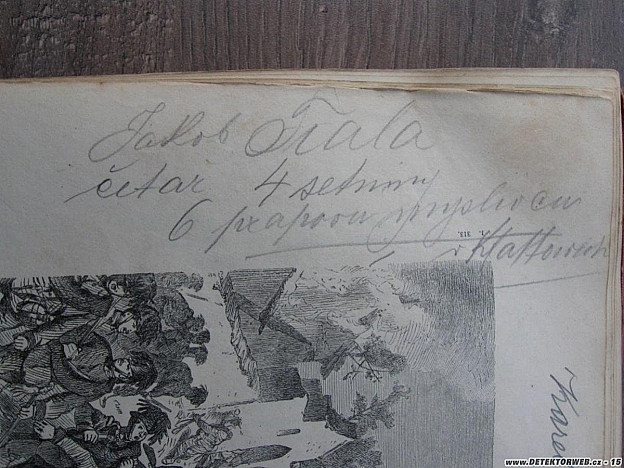 Jakob Fiala
četař 4 setniny
6 praporu myslivcu
v Klattowech
313.
www.DETEKTORWEB.cz - 15